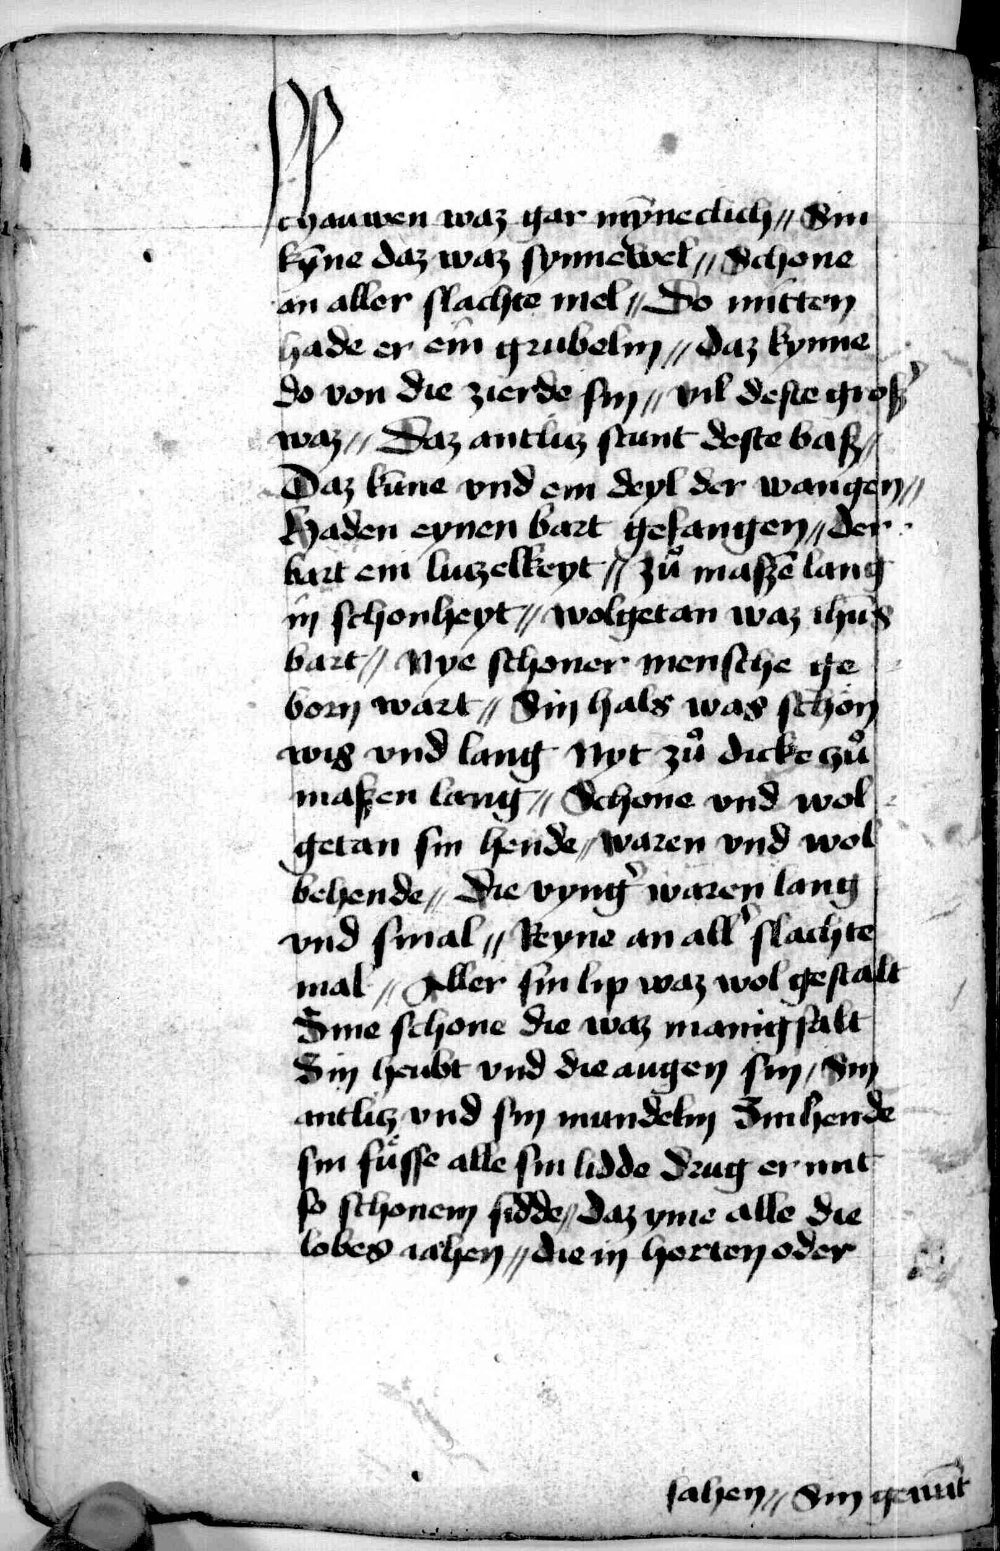 chauwen waz gar mȳneclich // Sin
kȳne daz waz synnewel // Schone
an aller slachte mel // Do mitten
hade er ein grubelin // daz kynne
do von die zierde sin // vil deste groſzˀ
waz // Daz antlitz stunt deste baſz //
Daz kūne vnd ein deyl der wangen //
Haden eynen bart gefangen // der
bart ein lutzelkeyt // zů maſzē lang
in schonheyt // wolgetan waz ihūs
bart // Nye schoner mensche ge
born wart // Sin hals was schon
wis vnd lang Nyt zů dicke zů
maſzen lang // Schone vnd wol
getan sin hende // waren vnd wol
behende // Die vyngˀ waren lang
vnd smal // Reyne an allˀ slachte
mal // Aller sin lip waz wol gestalt
Sine schone die waz manigfalt
Sin heubt vnd die augen sin / Sin
antlitz vnd sin mundelin Sin hende
sin fuͤsse alle sin lidde Drug er mit
so schonem sidde // daz yme alle die
lobes iahen // die in horten oder
sahen // Sin gemūt